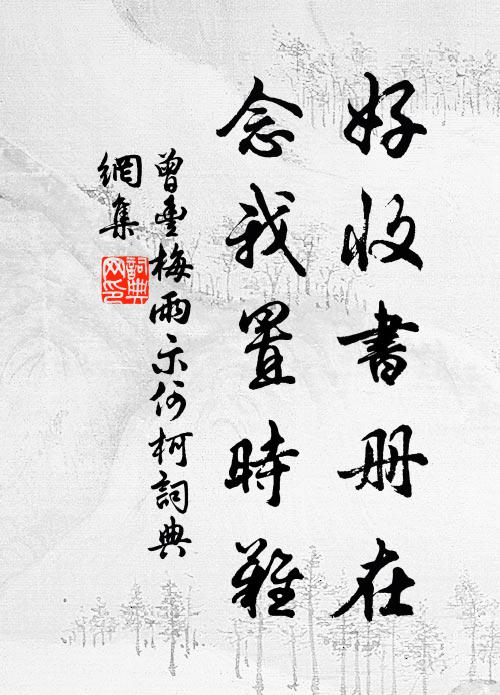 好收書册在
念我置時難
曾豐梅雨示仆柯詞典
網集
詞典網印